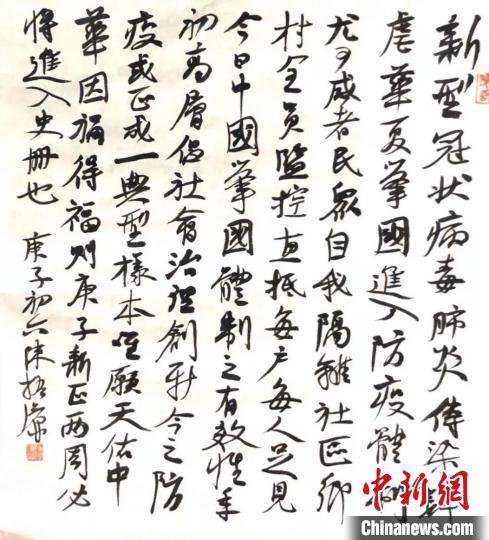 新型冠状病毒肺炎傳染肆
虐華夏舉國進入防疫體制
尤可感者民衆自我隔離社區鄉
村全員監控直抵每户每人足見
今日中國舉國體制之有效性年
初高層倡社會治理創新今之防
疫或正成一典型樣本唯願天佑中
華因禍得福則庚子新正两周必
將進入史册也 庚子初六陳振濂
中新网
Chinanews.com